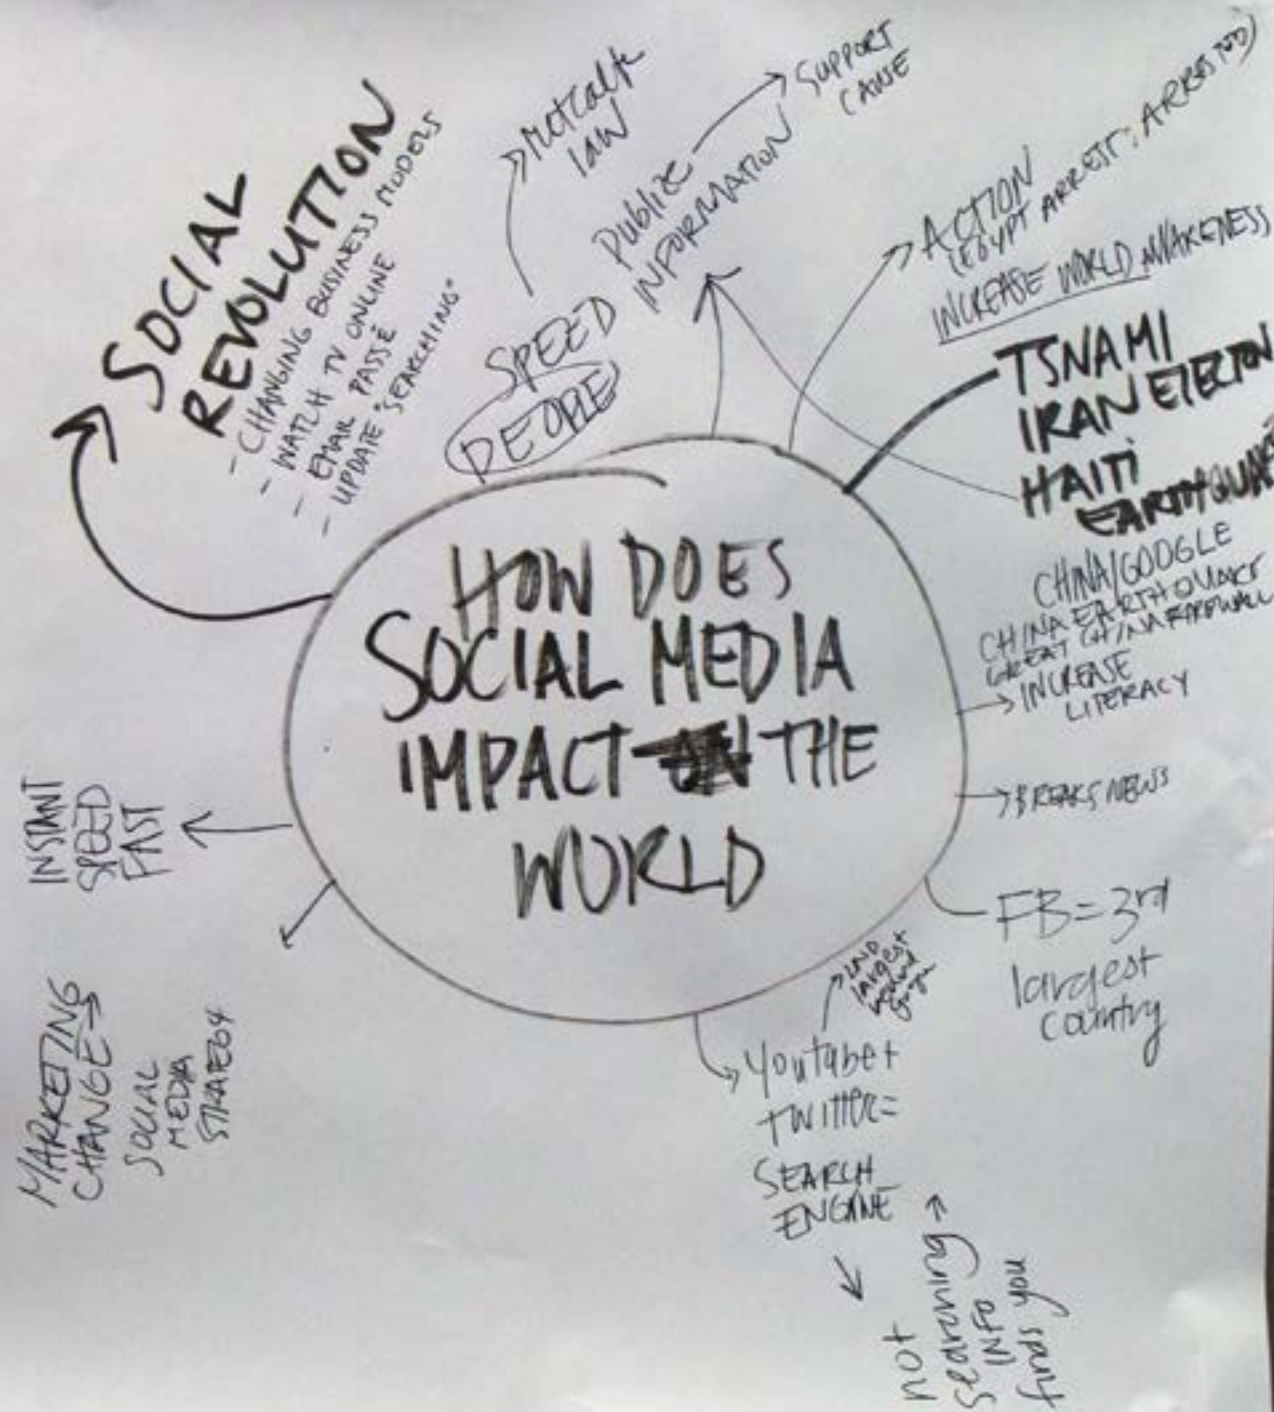 HOW DOES
SOCIAL MEDIA
IMPACT THE
WORLD
SOCIAL
REVOLUTION
- CHANGING BUSINESS MODELS
- WATCH TV ONLINE
- EMAIL PASSÉ
- UPDATE "SEARCHING"
SPEED
PEOPLE
Metcalfe
law
Publize
INFORMATION
SUPPORT
CAUSE
ACTION
(EGYPT ARREST; ARRESTED)
INCREASE WORLD AWARENESS
TSNAMI
IRAN
HAITI
EARTHQUAKE
CHINA/GOOGLE
CHINA EARTHQUAKE
GREAT CHINA FIREWALL
INCREASE
LITERACY
BREAKS NEWS
FB = 3rd
largest
country
2ND
largest
behind
Google
Youtube +
TWITTER =
SEARCH
ENGINE
not
searching
INFO
finds you
INSTANT
SPEED
FAST
MARKETING
CHANGE →
SOCIAL
MEDIA
STRATEGY